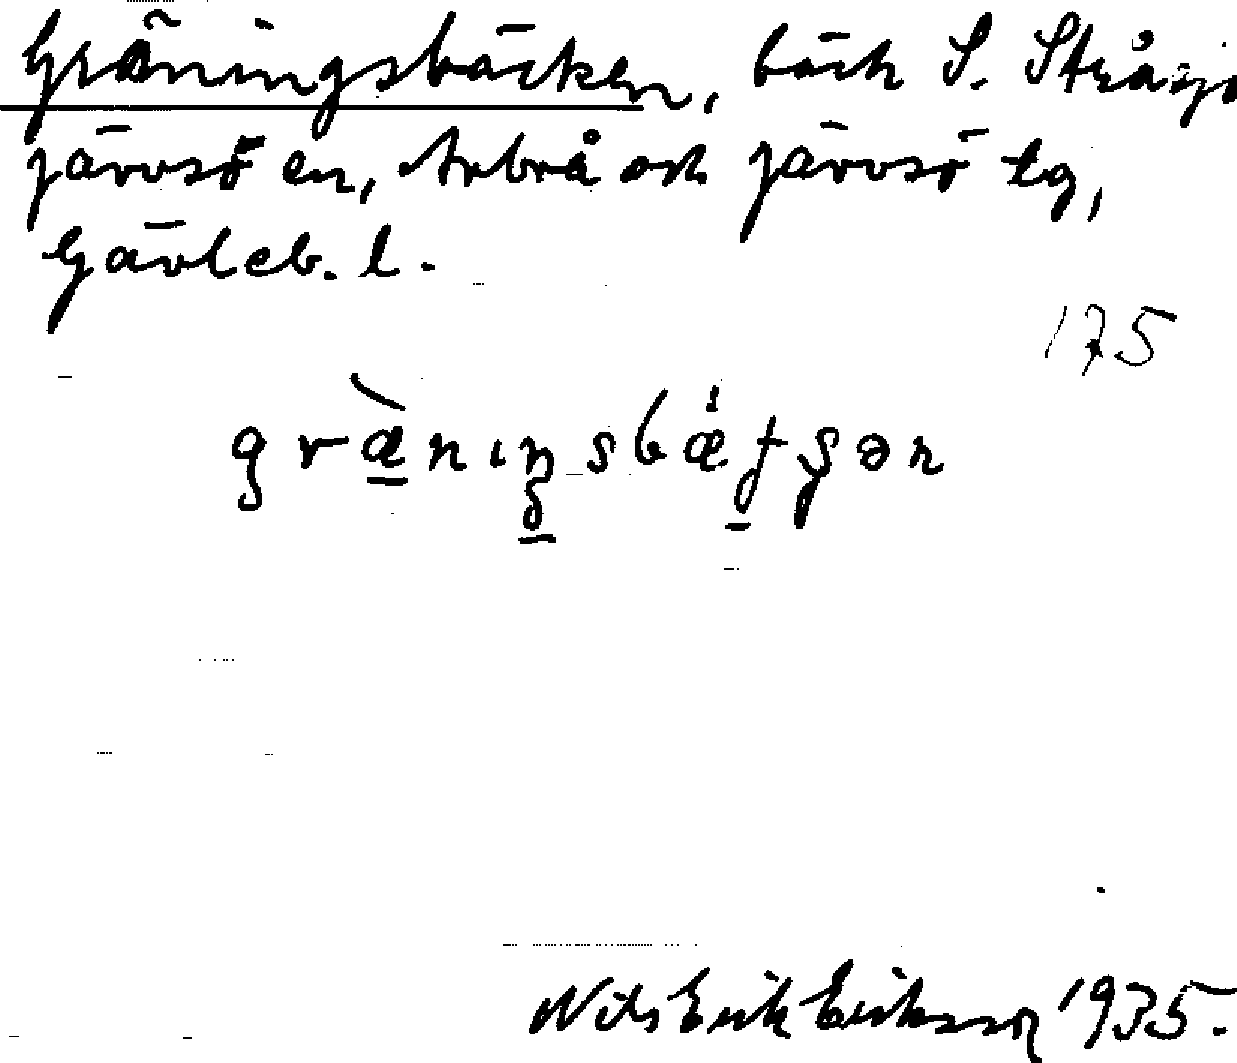 Gräningsbäcken, bäck S. Stråsjö
Järvsö sn, Arbrå och Järvsö tg,
Gävleb. l.
175
Nils Erik Eriksson 1935.